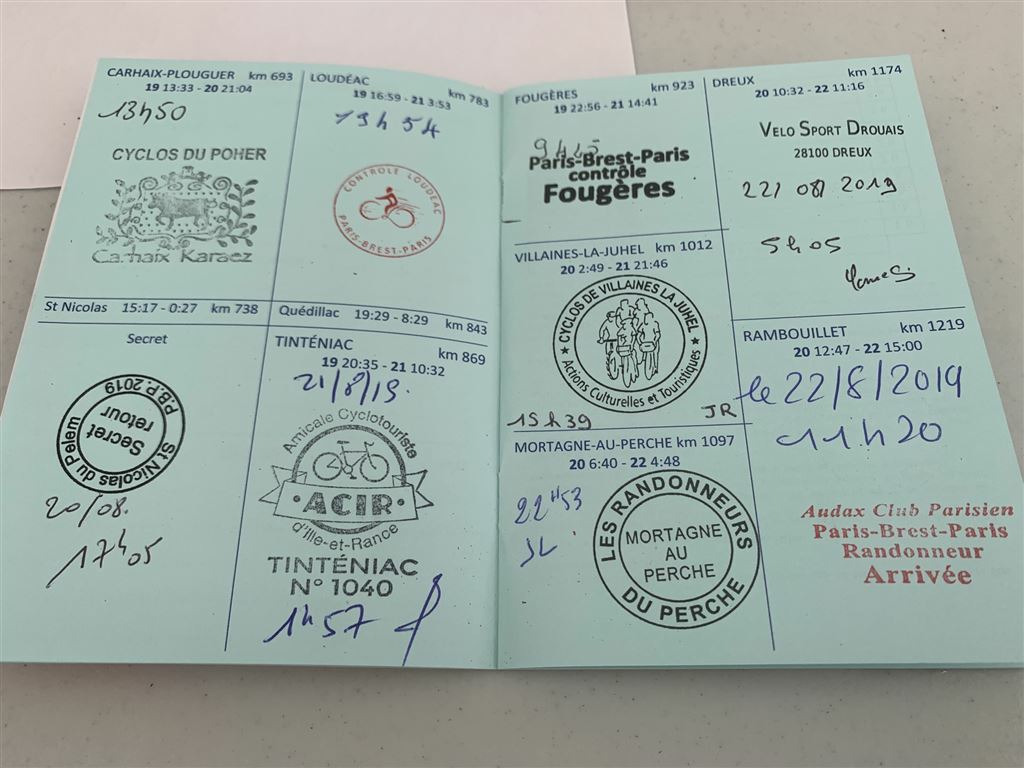 CARHAIX-PLOUGUER km 693
19 13:33 - 20 21:04
13h50
CYCLOS DU POHER
Carhaix Karaez
LOUDÉAC km 783
19 16:59 - 21 3:53
19h54
CONTROLE LOUDEAC
PARIS-BREST-PARIS
St Nicolas 15:17 - 0:27 km 738
Secret
P.B.P. 2019
Secret
retour
St Nicolas du Pelem
20/08.
17h05
Quédillac 19:29 - 8:29 km 843
TINTÉNIAC km 869
19 20:35 - 21 10:32
21/8/19.
Amicale Cyclotouriste
ACIR
d'Ille-et-Rance
TINTÉNIAC
N° 1040
1h57
FOUGÈRES km 923
19 22:56 - 21 14:41
Paris-Brest-Paris
contrôle
Fougères
VILLAINES-LA-JUHEL km 1012
20 2:49 - 21 21:46
CYCLOS DE VILLAINES LA JUHEL
Actions Culturelles et Touristiques
15h39 JR
MORTAGNE-AU-PERCHE km 1097
20 6:40 - 22 4:48
22H53
LES RANDONNEURS
MORTAGNE
AU
PERCHE
DU PERCHE
DREUX km 1174
20 10:32 - 22 11:16
VELO SPORT DROUAIS
28100 DREUX
22/08/2019
5h05
RAMBOUILLET km 1219
20 12:47 - 22 15:00
le 22/8/2019
11h20
Audax Club Parisien
Paris-Brest-Paris
Randonneur
Arrivée